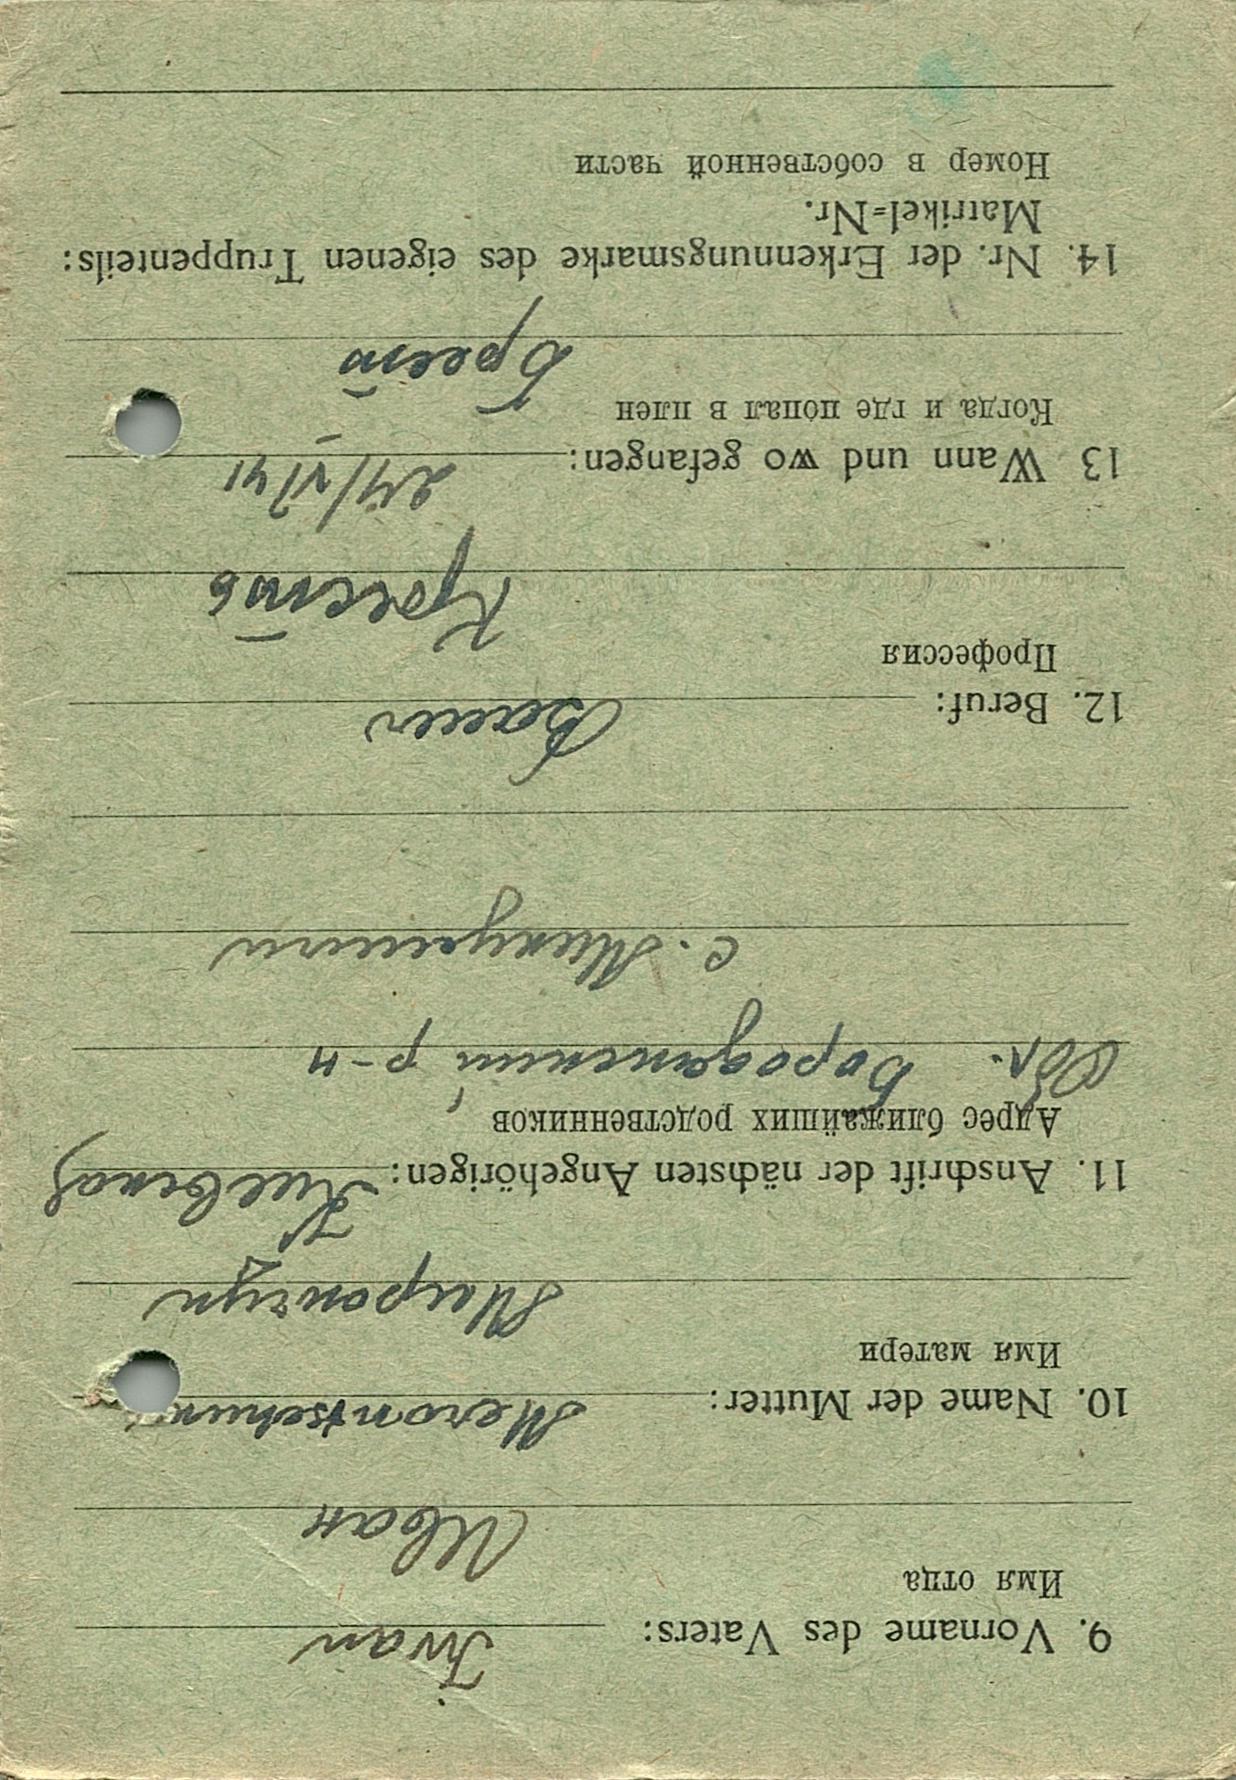 9. Vorname des Vaters: Iwan
Имя отца
Иван
10. Name der Mutter: Merontschuk
Имя матери
Мирончук
11. Anschrift der nächsten Angehörigen: Киевская
Адрес ближайших родственников
Обл. Бородянский р-н
с. Микуличи
12. Beruf: Bauer
Профессия
Крестб
13 Wann und wo gefangen: 24/VI 41
Когда и где попал в плен
Брест
14. Nr. der Erkennungsmarke des eigenen Truppenteils:
Matrikel=Nr.
Номер в собственной части